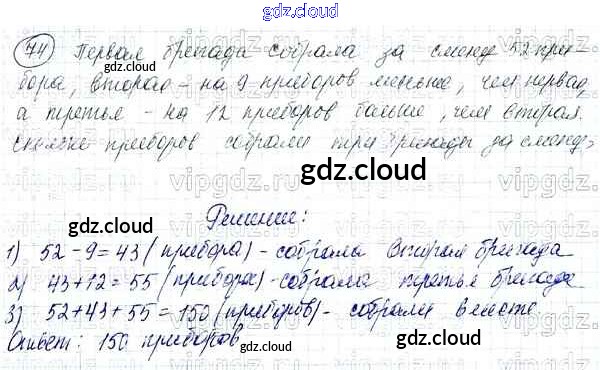 gdz.cloud
74 Первая бригада собрала за смену 52 при-
бора, вторая - на 9 приборов меньше, чем первая,
gdz.cloud
а третья - на 12 приборов больше, чем вторая.
gdz.cloud
Сколько приборов собрали три бригады за смену?
gdz.cloud
Решение:
gdz.cloud
1) 52 - 9 = 43 (прибора) - собрала вторая бригада
2) 43 + 12 = 55 (прибора) - собрала третья бригада
gdz.cloud
3) 52 + 43 + 55 = 150 (приборов) - собрали вместе.
Ответ: 150 приборов
gdz.cloud
gdz.cloud